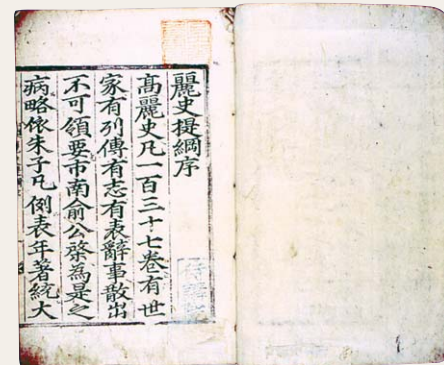 麗史提綱序
高麗史凡一百三十七卷有世
家有列傳有志有表辭事散出
不可領要市南俞公棨為是之
病略依朱子凡例表年著統大